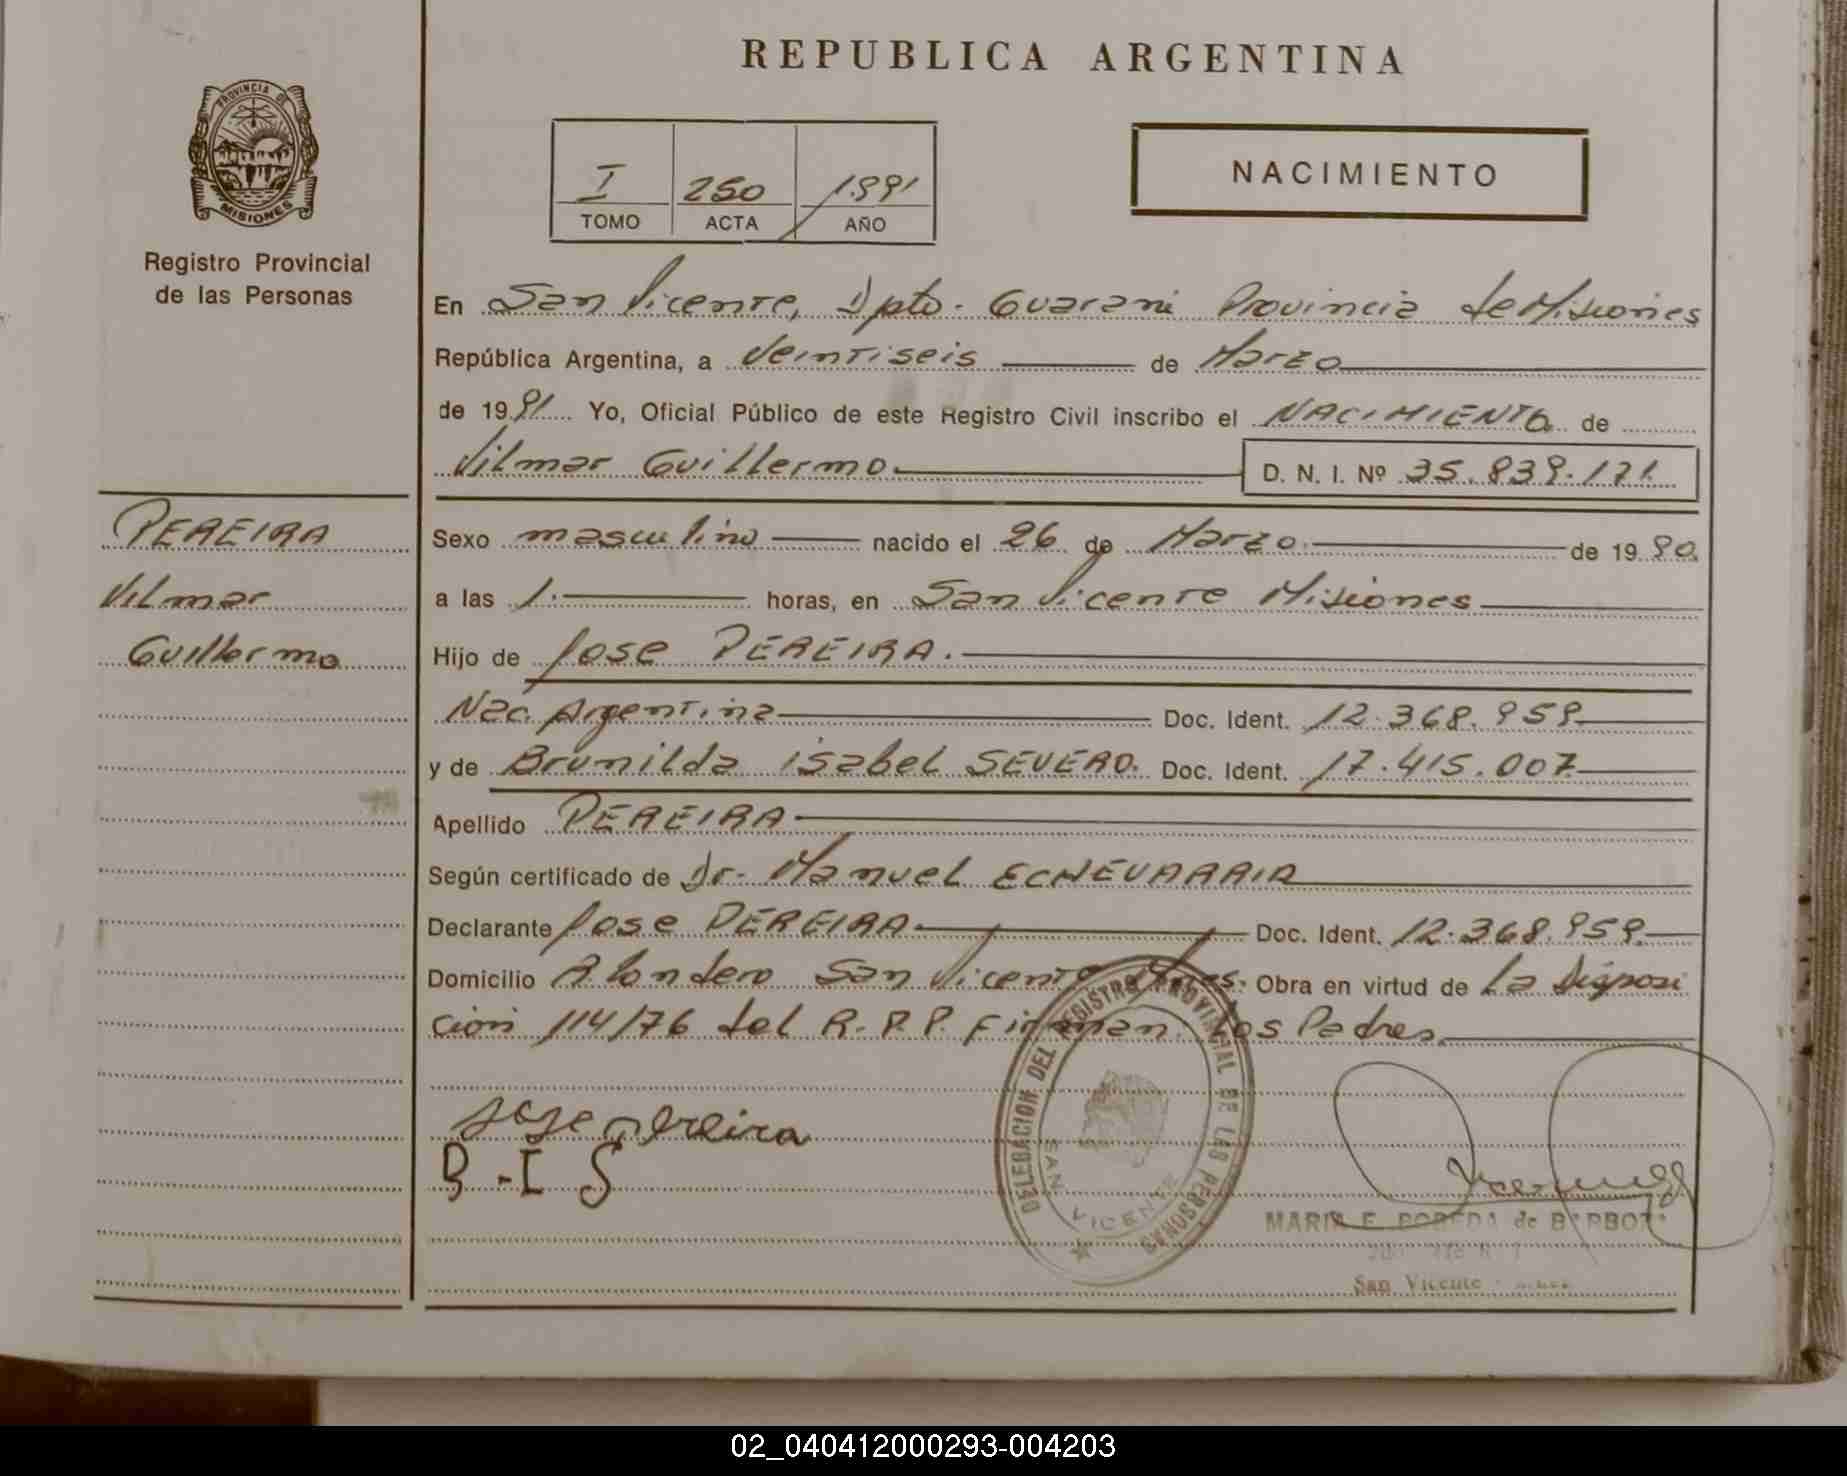 REPUBLICA ARGENTINA
PROVINCIA DE
MISIONES
Registro Provincial
de las Personas
I 250 1.991
TOMO ACTA AÑO
NACIMIENTO
En San Vicente, Dpto. Guarani Provincia de Misiones
República Argentina, a Veintiseis de Marzo
de 1991 Yo, Oficial Público de este Registro Civil inscribo el NACIMIENTO de
Vilmar Guillermo D. N. I. Nº 35.839.171.
PEREIRA
Vilmar
Guillermo
Sexo masculino nacido el 26 de Marzo de 1990.
a las 1. horas, en San Vicente Misiones
Hijo de Jose PEREIRA.
Nac. Argentina Doc. Ident. 12.368.959
y de Brunilda isabel SEVERO. Doc. Ident. 17.415.007
Apellido PEREIRA
Según certificado de Dr. Manuel ECHEVARRIA
Declarante Jose PEREIRA Doc. Ident. 12.368.959.
Domicilio A. Londero San Vicente Mnes. Obra en virtud de La Disposi
cion 114/76 del R.P.P. Firman. Los Padres.
Jose Pereira
B-I S
DELEGACION DEL REGISTRO PROVINCIAL DE LAS PERSONAS
SAN VICENTE
MARIA E. POREDA de BARBOZA
San Vicente
02_040412000293-004203